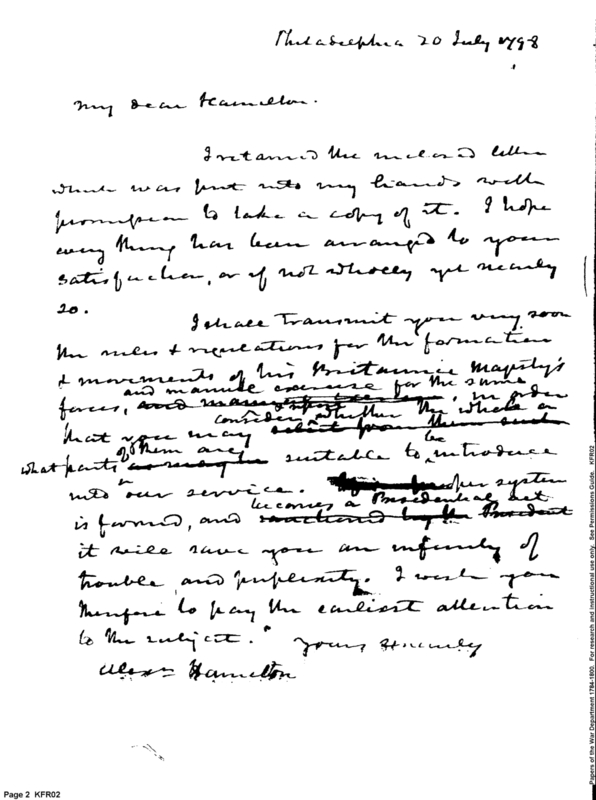 Philadelphia 20 July 1798
My dear Hamilton.
I retained the inclosed letter
which was put into my hands with
permission to take a copy of it. I hope
every thing has been arranged to your
satisfaction, or if not wholly yet nearly
so.
I shall transmit you very soon
the rules & regulations for the formation
& movements of his Britannic Majesty's
and manual exercise for the same
forces, and manual exercise, in order
consider whether the whole or
that you may select from them such
what parts of them are as may be suitable to be introduce
into our service. If a proper system
becomes a Presidential act
is formed, and sanctioned by the President
it will save you an infinity of
trouble and perplexity. I wish you
therefore to pay the earliest attention
to the subject. Yours sincerely
Alexr Hamilton
Page 2 KFR02
Papers of the War Department 1784-1800. For research and instructional use only. See Permissions Guide. KFR02